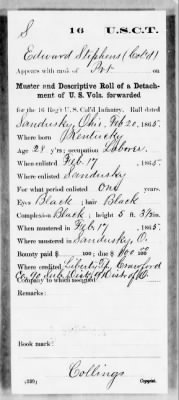 S 16 U.S.C.T.
Edward Stephens (Col'd)
Appears with rank of Pvt. on
Muster and Descriptive Roll of a Detach-
ment of U. S. Vols. forwarded
for the 16 Reg't U. S. Col'd Infantry. Roll dated
Sandusky, Ohio, Feb. 20, 1865.
Where born Kentucky
Age 28 y'rs; occupation Laborer
When enlisted Feb. 17, 1865.
Where enlisted Sandusky
For what period enlisted one years.
Eyes Black; hair Black
Complexion Black; height 5 ft. 3 1/2 in.
When mustered in Feb. 17, 1865.
Where mustered in Sandusky, O.
Bounty paid $ 100; due $ 100
Where credited Liberty Tp., Crawford
Co. Sub. Dist. Dist. of O.
Company to which assigned
Remarks:
Book mark:
Collings
(339) Copyist.